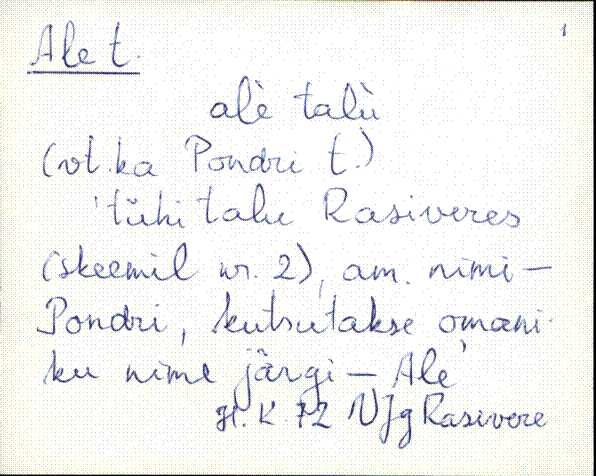 1
Ale t.
alè talù
(vt. ka Pondri t.)
'tühi talu Rasiveres
(skeemil nr. 2), am. nimi –
Pondri, kutsutakse omani-
ku nime järgi – Ale'
H. K. 72 VJg Rasivere